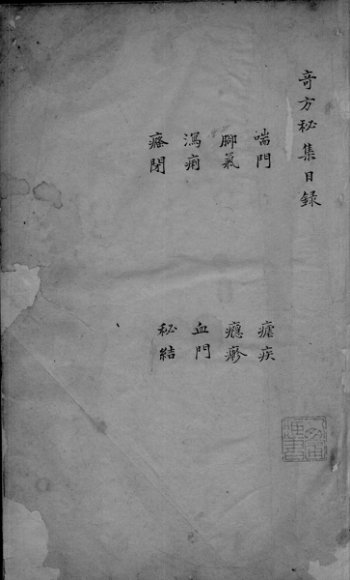 奇方秘集目録
喘門 瘧疾
腳氣 癮疹
瀉痢 血門
癃閉 秘結